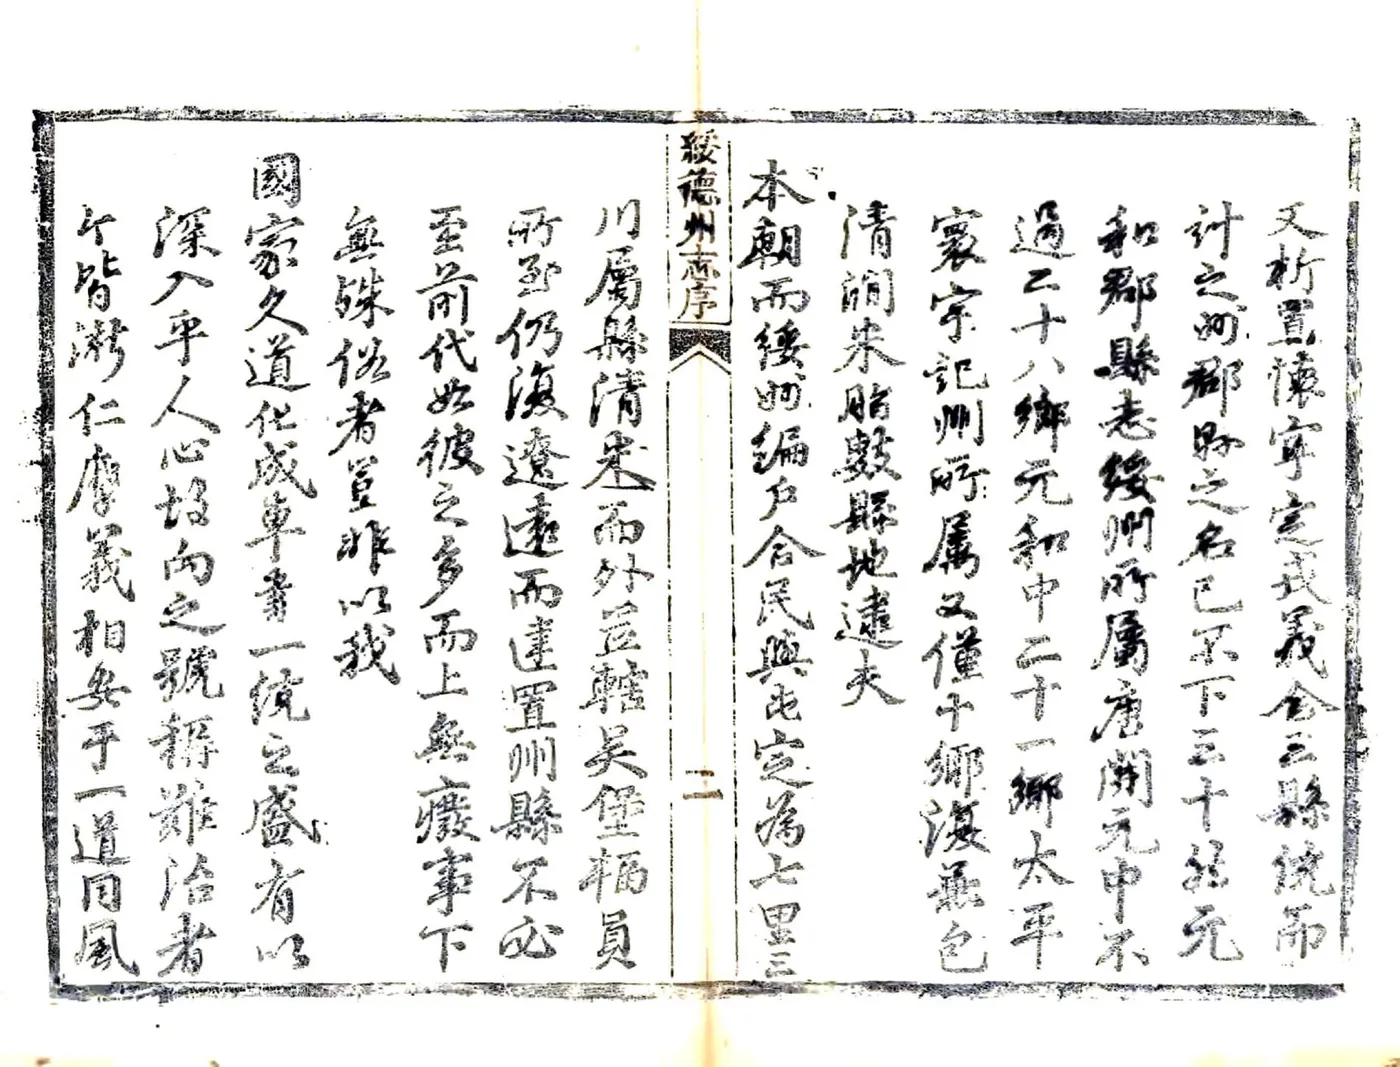 又析置懷寧定戎義合三縣統而
計之州郡縣之名已不下三十然元
和郡縣志綏州所屬唐開元中不
過二十八鄉元和中二十一鄉太平
寰宇記州所屬又僅十鄉復無包
清澗米脂數縣地逮夫
本朝而綏州編戶合民與屯定為七里三
綏德州志序
二
川屬縣清米而外並轄吳堡幅員
所至仍復遼遠而建置州縣不必
至前代如彼之多而上無癈事下
無殊俗者豈非以我
國家久道化成車書一統之盛有以
深入乎人心故向之號稱難治者
今皆漸仁摩義相安于一道同風